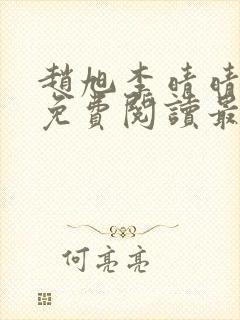 趙旭李晴晴
免費閱讀最
何亮亮